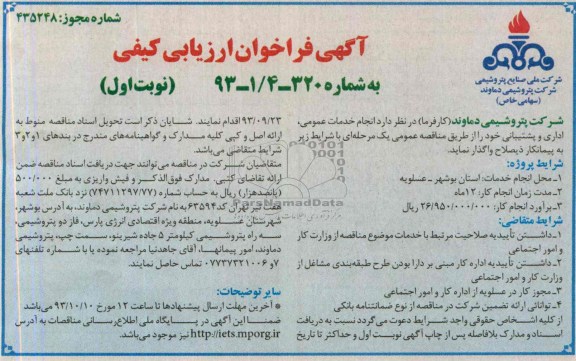 شماره مجوز: ۴۳۵۲۴۸
شرکت ملی صنایع پتروشیمی
شرکت پتروشیمی دماوند
(سهامی خاص)
آگهی فراخوان ارزیابی کیفی
به شماره ۳۲۰-۱/۴-۹۳ (نوبت اول)
شرکت پتروشیمی دماوند (کارفرما) در نظر دارد انجام خدمات عمومی،
اداری و پشتیبانی خود را از طریق مناقصه عمومی یک مرحله‌ای با شرایط زیر
به پیمانکار ذیصلاح واگذار نماید.
شرایط پروژه:
۱ـ محل انجام خدمات: استان بوشهر ـ عسلویه
۲ـ مدت زمان انجام کار: ۱۲ ماه
۳ـ برآورد انجام کار: ۲۶/۹۵۰/۰۰۰/۰۰۰ ریال
شرایط متقاضی:
۱ـ داشتن تأییدیه صلاحیت مرتبط با خدمات موضوع مناقصه از وزارت کار
و امور اجتماعی
۲ـ داشتن تأییدیه اداره کار مبنی بر دارا بودن طرح طبقه‌بندی مشاغل از
وزارت کار و امور اجتماعی
۳ـ مجوز کار در عسلویه از اداره کار و امور اجتماعی
۴ـ توانائی ارائه تضمین شرکت در مناقصه از نوع ضمانتنامه بانکی
از کلیه اشخاص حقوقی واجد شرایط دعوت می‌گردد نسبت به دریافت
اسناد و مدارک بلافاصله پس از چاپ آگهی نوبت اول و حداکثر تا تاریخ
۹۳/۰۹/۲۳ اقدام نمایند. شایان ذکر است تحویل اسناد مناقصه منوط به
ارائه اصل و کپی کلیه مدارک و گواهینامه‌های مندرج در بندهای ۱و۲و۳
شرایط متقاضی می‌باشد.
متقاضیان شرکت در مناقصه می‌توانند جهت دریافت اسناد مناقصه ضمن
ارائه تقاضای کتبی، مدارک فوق‌الذکر و فیش واریزی به مبلغ ۵۰۰/۰۰۰
(پانصدهزار) ریال به حساب شماره (۷۴۷۱۱۲۹۷/۷۷) نزد بانک ملت شعبه
هفت تیر تهران کد ۶۳۵۹۴ به نام شرکت پتروشیمی دماوند، به آدرس بوشهر،
شهرستان عسلویه، منطقه ویژه اقتصادی انرژی پارس، فاز دو پتروشیمی،
سه راه پتروشیمی کیلومتر ۵ جاده شیرینو، سمت چپ، پتروشیمی
دماوند، امور پیمانها، آقای جاهدنیا مراجعه نموده یا با شماره تلفنهای
۷و ۰۷۷۳۷۳۲۱۰۰۶ تماس حاصل نمایند.
سایر توضیحات:
آخرین مهلت ارسال پیشنهادها تا ساعت ۱۲ مورخ ۹۳/۱۰/۱۰ می‌باشد
ضمنا این آگهی در پایگاه ملی اطلاع‌رسانی مناقصات به آدرس
http://iets.mporg.ir نیز موجود می‌باشد.
ParsNamadData